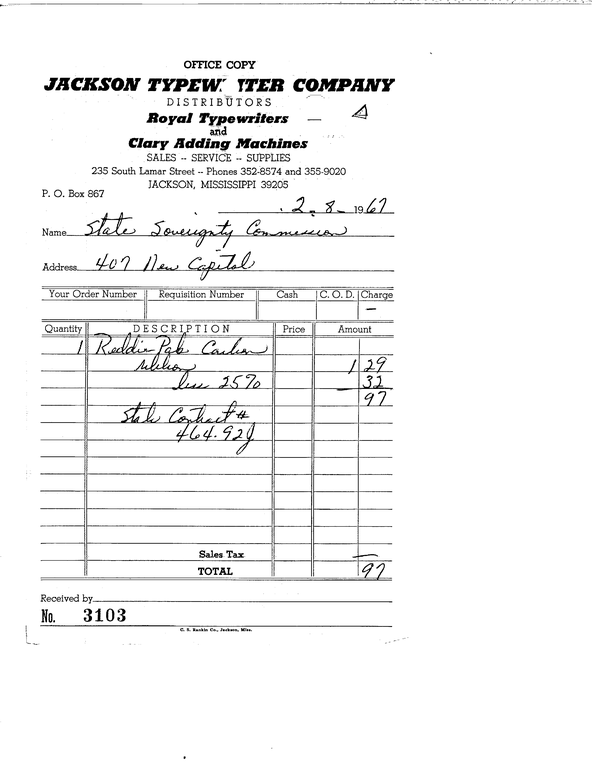 OFFICE COPY
JACKSON TYPEW. ITER COMPANY
DISTRIBUTORS
Royal Typewriters
and
Clary Adding Machines
SALES -- SERVICE -- SUPPLIES
235 South Lamar Street -- Phones 352-8574 and 355-9020
JACKSON, MISSISSIPPI 39205
P. O. Box 867
2-8-1967
Name State Sovereignty Commission
Address 407 New Capitol
Your Order Number Requisition Number Cash C. O. D. Charge
—
Quantity DESCRIPTION Price Amount
1 Reddie Pak Carbon
ribbon 1 29
less 25% 32
97
State Contract #
464.92J
Sales Tax —
TOTAL 97
Received by
No. 3103
C. S. Rankin Co., Jackson, Miss.